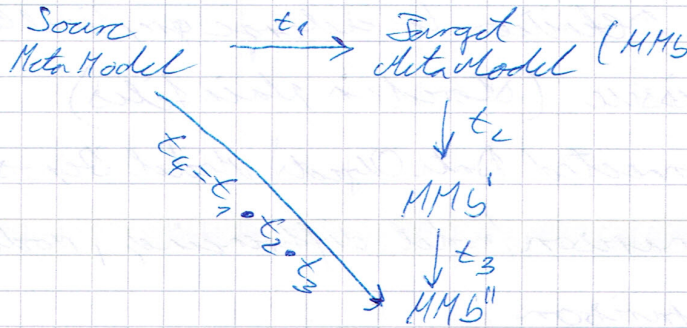 Sourc
Meta Model
t₁
Target
MetaModel (MMb
t₂
MMb'
t₄=t₁•t₂•t₃
t₃
MMb"